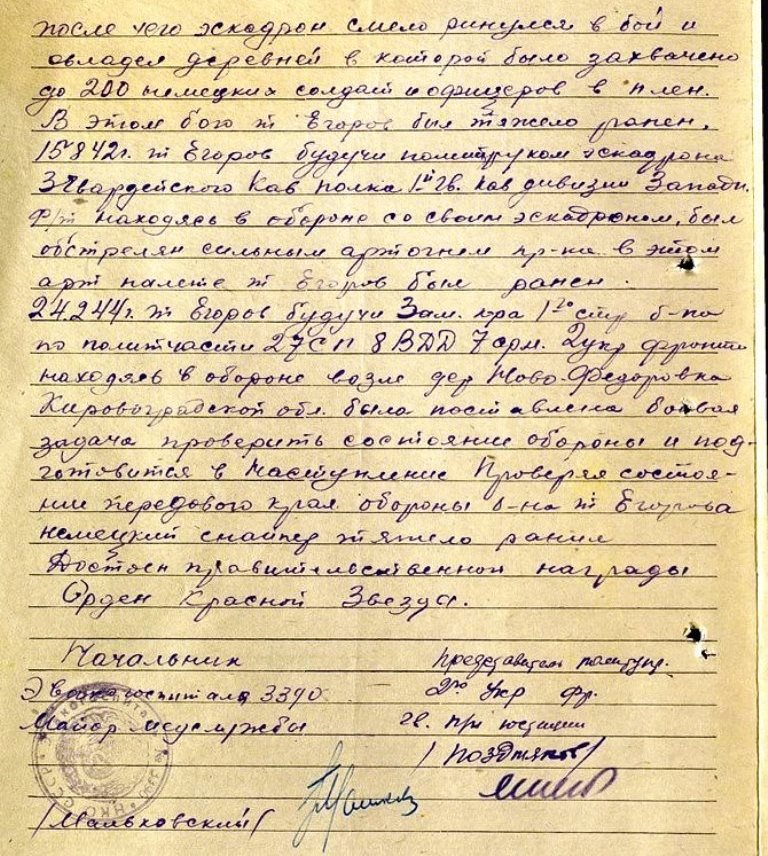 после чего эскадрон смело ринулся в бой и
овладел деревней в которой было захвачено
до 200 немецких солдат и офицеров в плен.
В этом бою т Егоров был тяжело ранен.
15842г. т Егоров будучи политруком эскадрона
3 Гвардейского Кав полка 1й гв. кав дивизии Западн.
ф/т находясь в обороне со своим эскадроном, был
обстрелян сильным артогнем пр-ка в этом
арт налете т Егоров был ранен.
24.2.44г. т Егоров будучи Зам. к-ра 1го стр б-на
по политчасти 27 СП 8 ВДД 7 арм. 2 укр фронта
находясь в обороне возле дер Ново-Федоровка
Кировоградской обл. была поставлена боевая
задача проверить состояние обороны и под-
готовится в наступление Проверяя состоя-
нии передового края обороны б-на т Егорова
немецкий снайпер тяжело ранил
Достоен правительственной награды
Орден Красной Звезда.
Начальник
Представитель политупр.
Эвакогоспиталя 3390
2го Укр Фр.
Майор медслужбы
гв. юстиции
/Поздняков/
/Мальковский/